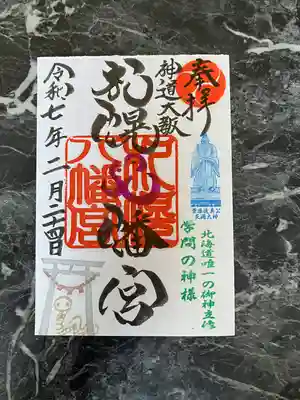 奉拝
神道大教
札幌八幡宮
札幌八幡宮
令和七年二月二十四日
菅原道真公
天満大神
北海道唯一の御神立像
学問の神様